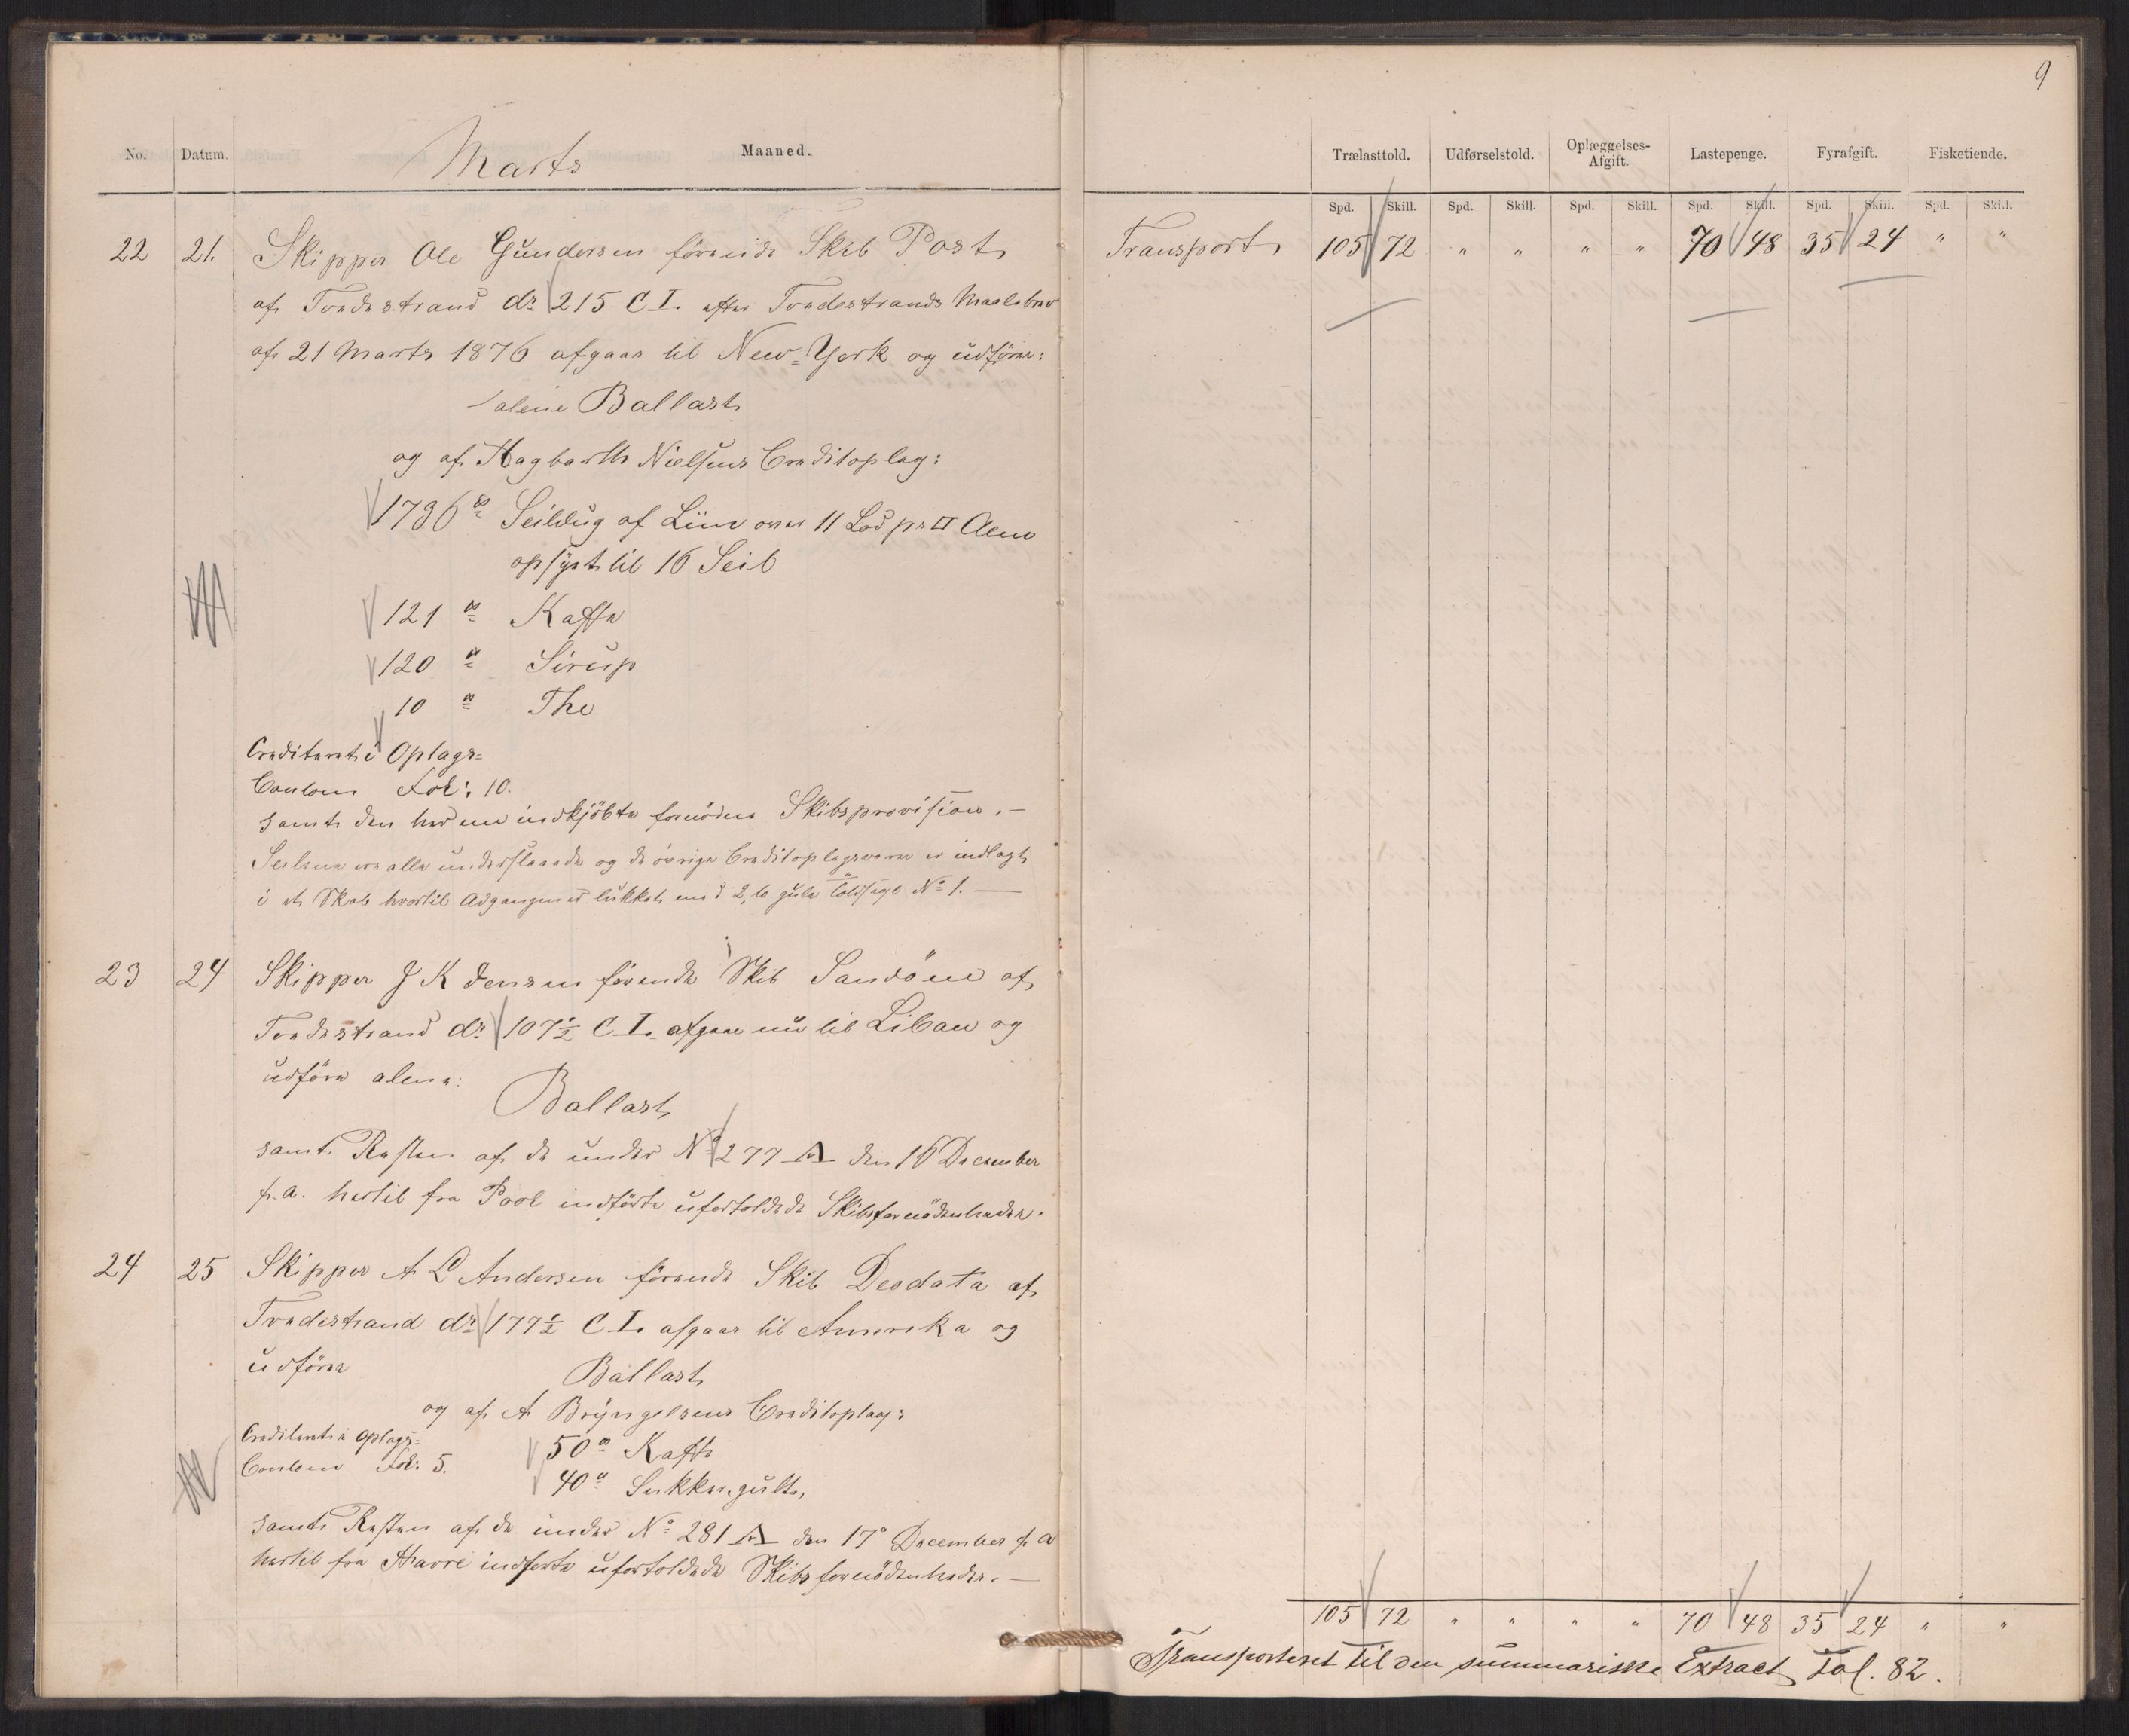 9
No. Datum. Marts Maaned.
Trælasttold. Udførselstold. Oplæggelses-Afgift. Lastepenge. Fyrafgift. Fisketiende.
Spd. Skill. Spd. Skill. Spd. Skill. Spd. Skill. Spd. Skill. Spd. Skill.
Transport 105 72 " " " " 70 48 35 24 " "
22 21. Skipper Ole Gundersen förende Skib Post
af Tvedestrand dr. 215 C L. efter Tvedestrands Maalebrev
af 21 Marts 1876 afgaar til New=York og udförer:
alene Ballast
og af Hagbarth Nielsens Creditoplag:
1736 ℔ Seildug af Liin over 11 Lod pr □ Alen
opsyet til 16 Seil
121 ℔ Kaffe
120 ℔ Sirup
10 ℔ The
Crediteret i Oplags=
Contoen Fol: 10.
samt den her nu indkjöbte fornödne Skibsprovision.—
Seilene ere alle underslaaede og de övrige Creditoplagsvarer er indlagt
i et Skab hvortil Adgangen er lukket med 2, to gule Toldsegl No 1.—
23 24 Skipper J K Jensen förende Skib Sandöen af
Tvedestrand dr. 107½ C L. afgaar nu til Libau og
udförer alene:
Ballast
samt Resten af de under No 277 A den 16 December
f. A. hertil fra Pool indförte ufortoldede Skibsfornödenheder.
24 25 Skipper A L Andersen förende Skib Deodata af
Tvedestrand dr. 177½ C L. afgaar til Amerika og
udförer
Ballast
og af A Bryngelsens Creditoplag:
Crediteret i Oplags=
Contoen Fol: 5.
50 ℔ Kaffe
40 ℔ Sukker, gult,
samt Resten af de under No 281 A den 17de December f. A
hertil fra Havre indførte ufortoldede Skibsfornödenheder.—
105 72 " " " " 70 48 35 24 " "
Transporteret til den summariske Extract Fol. 82.